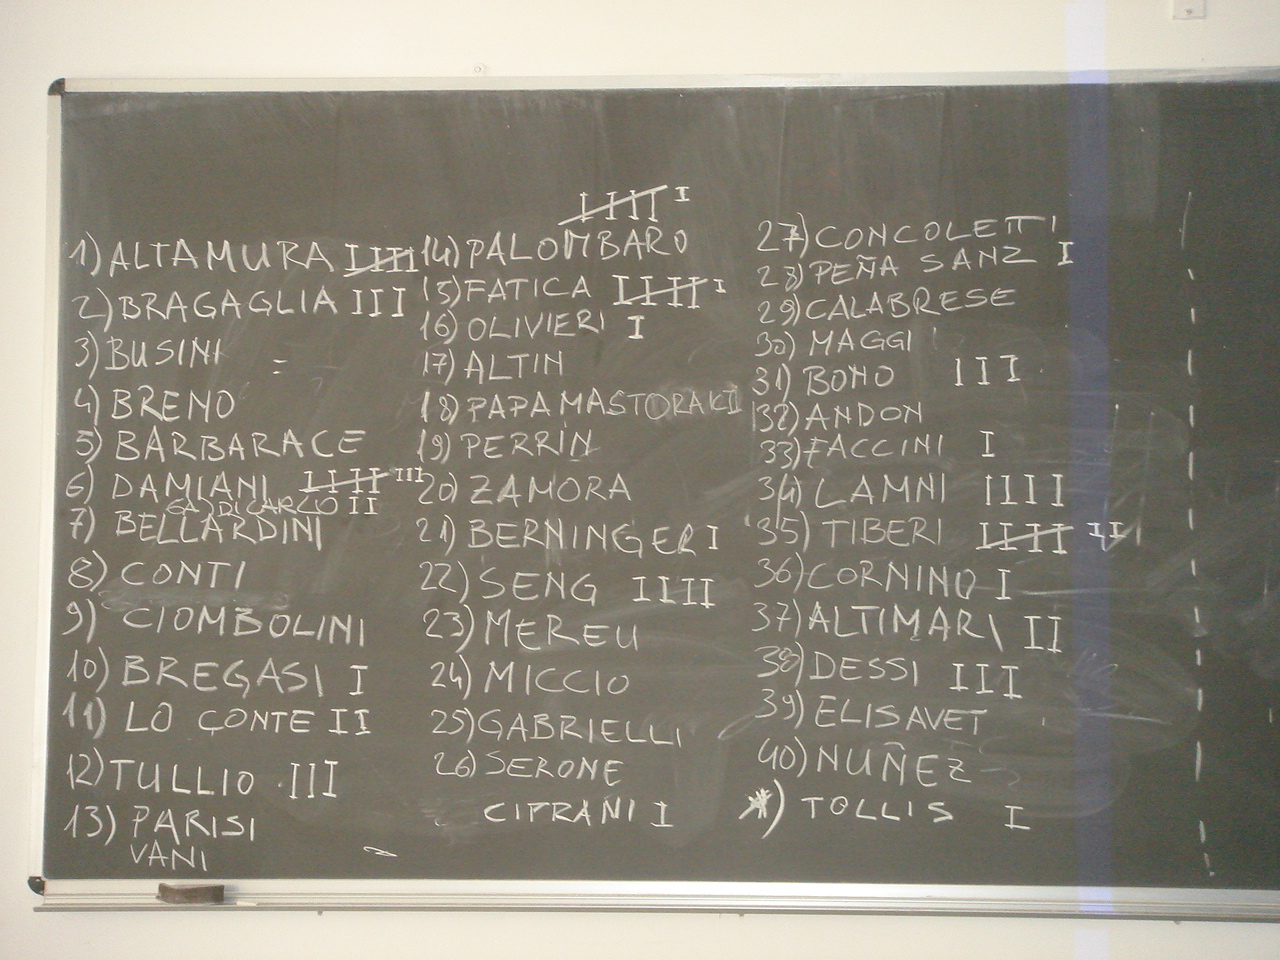 1) ALTAMURA IIIII
2) BRAGAGLIA III
3) BUSINI =
4) BRENO
5) BARBARACE
6) DAMIANI IIIII III
6A) DI CARLO II
7) BELLARDINI
8) CONTI
9) CIOMBOLINI
10) BREGASI I
11) LO CONTE II
12) TULLIO III
13) PARISI
VANI
IIIII I
14) PALOMBARO
15) FATICA IIIII I
16) OLIVIERI I
17) ALTIN
18) PAPAMASTORAKI I
19) PERRIN
20) ZAMORA
21) BERNINGER I
22) SENG IIII
23) MEREU
24) MICCIO
25) GABRIELLI
26) SERONE
CIPRANI I
27) CONCOLETTI
28) PEÑA SANZ I
29) CALABRESE
30) MAGGI
31) BOMO III
32) ANDON
33) FACCINI I
34) LAMNI IIII
35) TIBERI IIIII II
36) CORNINO I
37) ALTIMARI II
38) DESSI III
39) ELISAVET
40) NUÑEZ
*) TOLLIS I